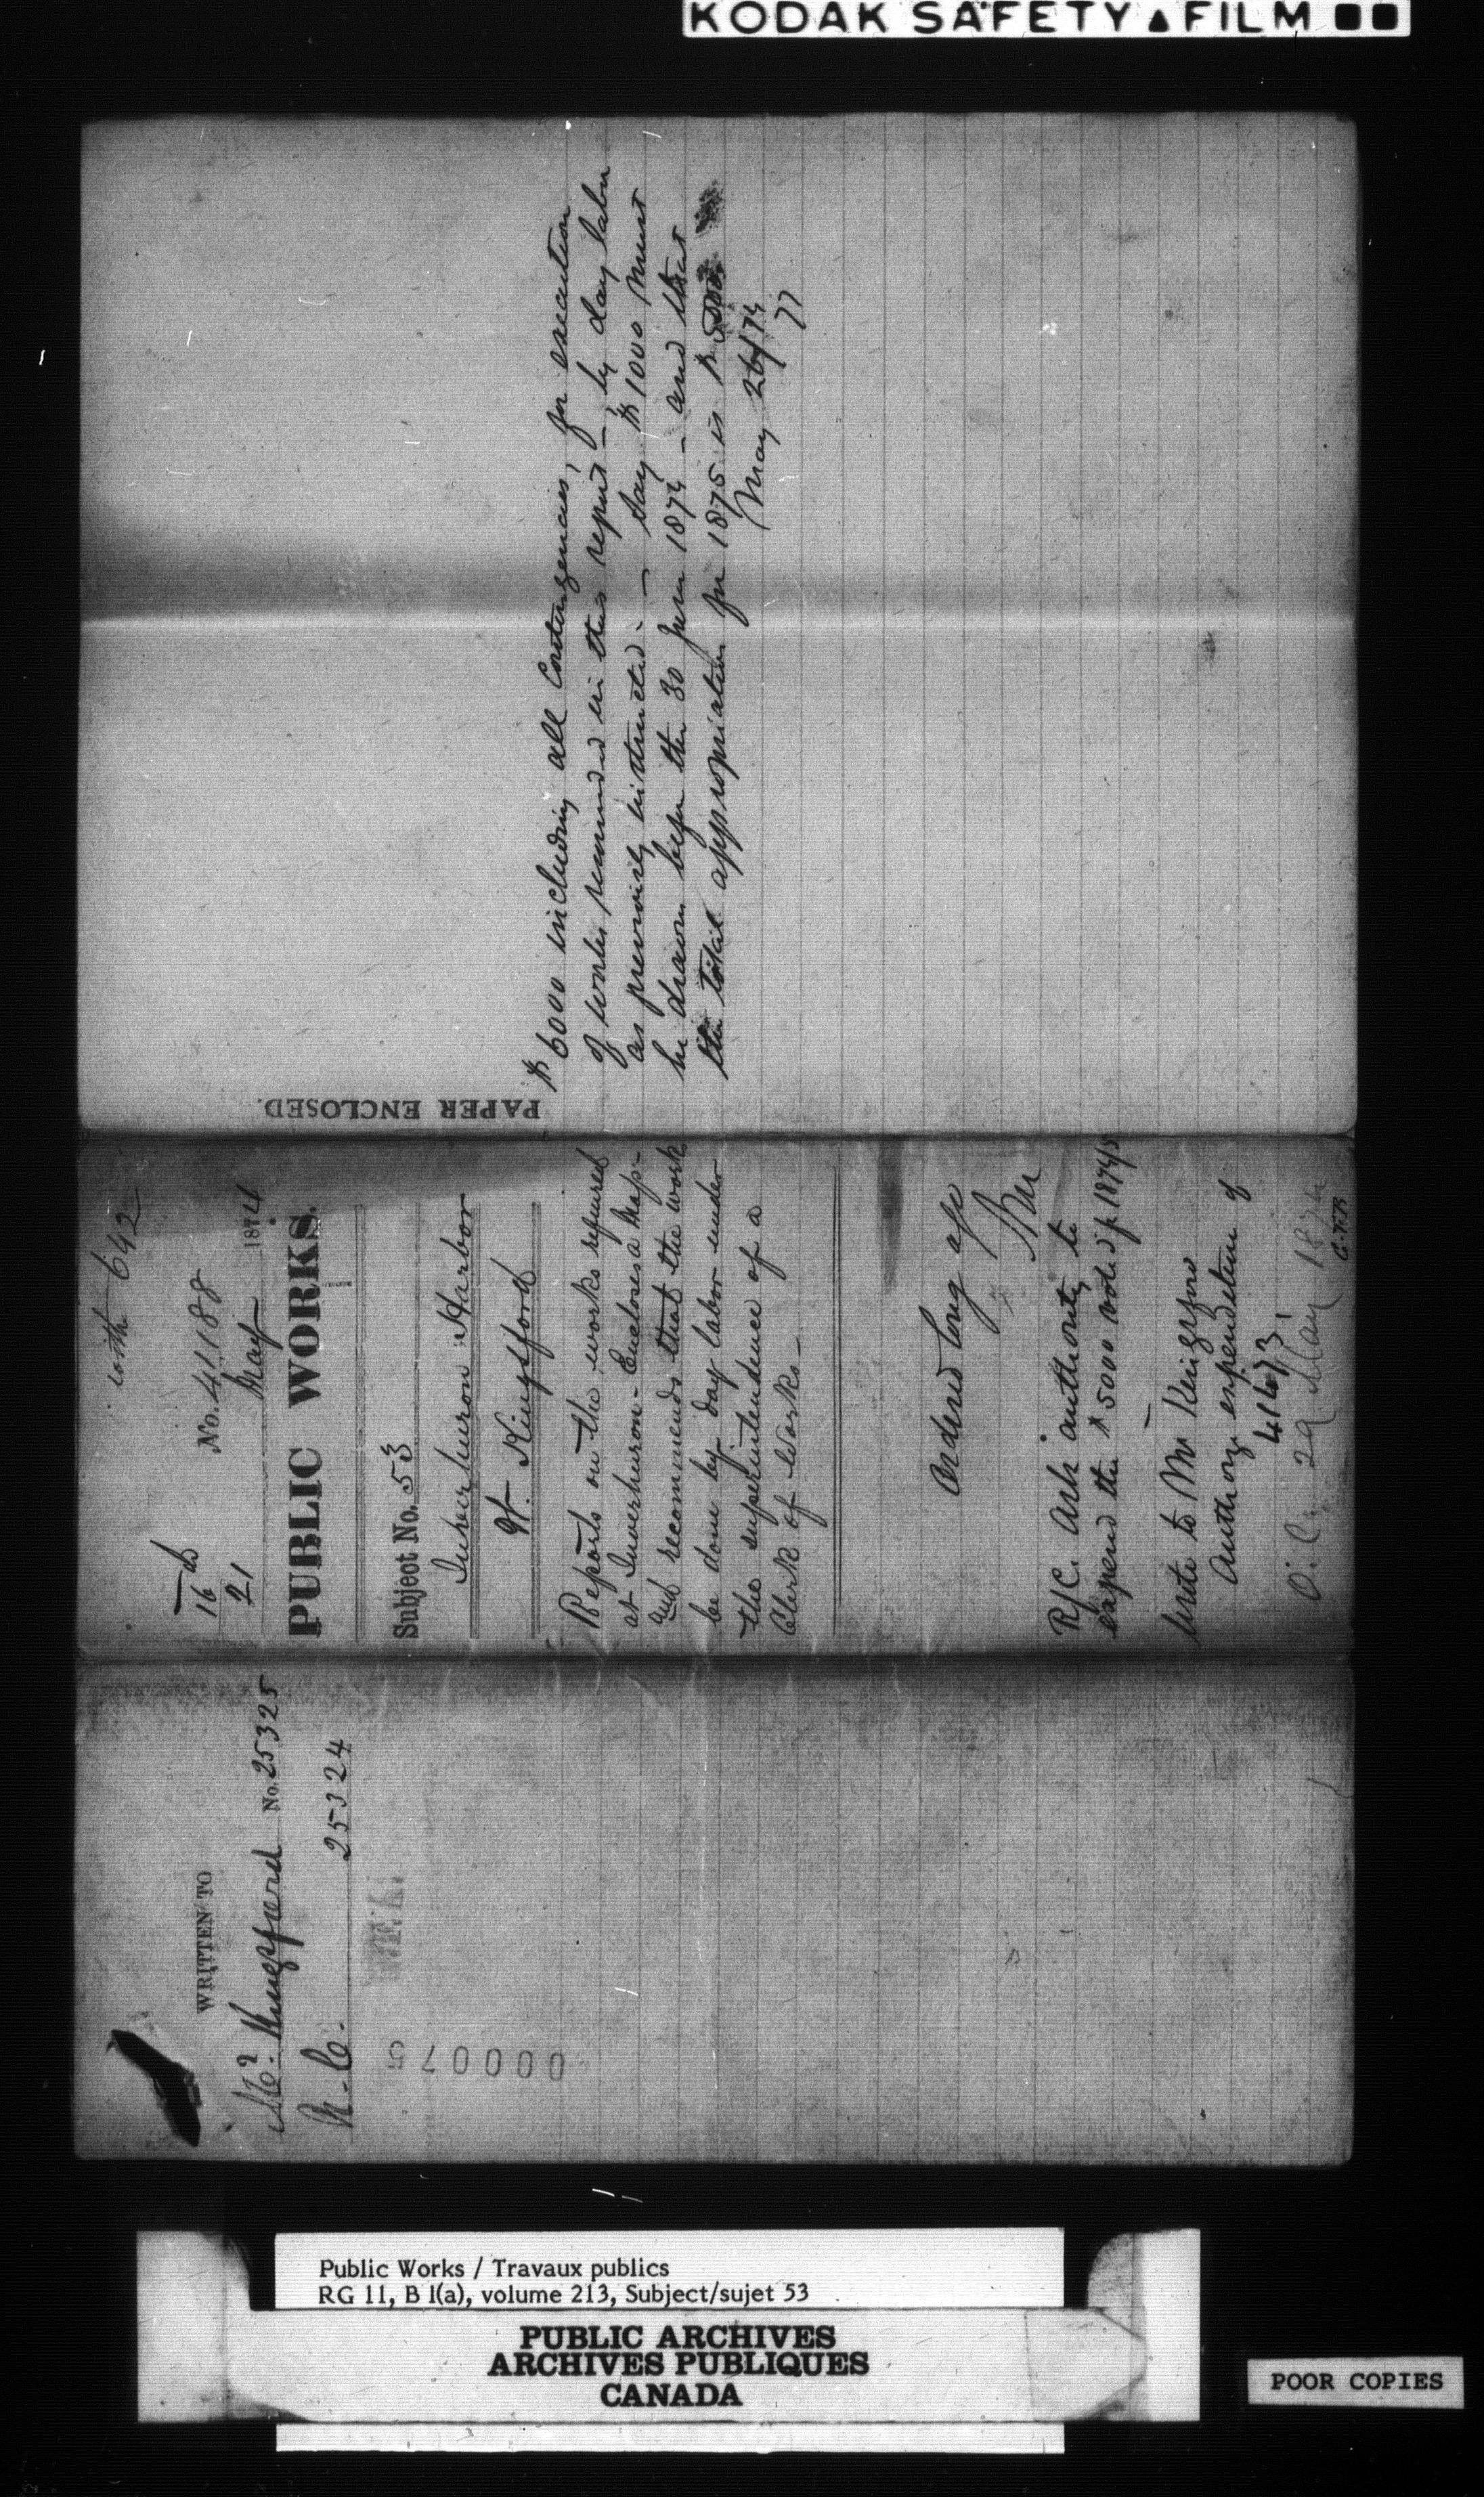 KODAK SAFETY ▲ FILM
with 642
16
21
No. 41188
May 1874
PUBLIC WORKS.
Subject No. 53
Inverhuron Harbor
W. Kingsford
Reports on the works required
at Inverhuron - Encloses a Map -
and recommends that the work
be done by day labor under
the superintendence of a
Clerk of Works -
Ordered long ago
R/C. Ask authority to
expend the $5000 voted f 1874/5
Write to Mr Kingsford
Authorize expenditure of
41473
O. C. 29 May 1874
PAPER ENCLOSED.
$6000 including all Contingencies, for execution
of works in this report - by day labor
as previously instructed - say $1000 must
be drawn before the 30 June 1874 - and that
the total appropriation for 1875 is $5000
May 26/74
77
WRITTEN TO
Kingsford No. 25325
25324
000075
Public Works / Travaux publics
RG 11, B 1(a), volume 213, Subject/sujet 53
PUBLIC ARCHIVES
ARCHIVES PUBLIQUES
CANADA
POOR COPIES